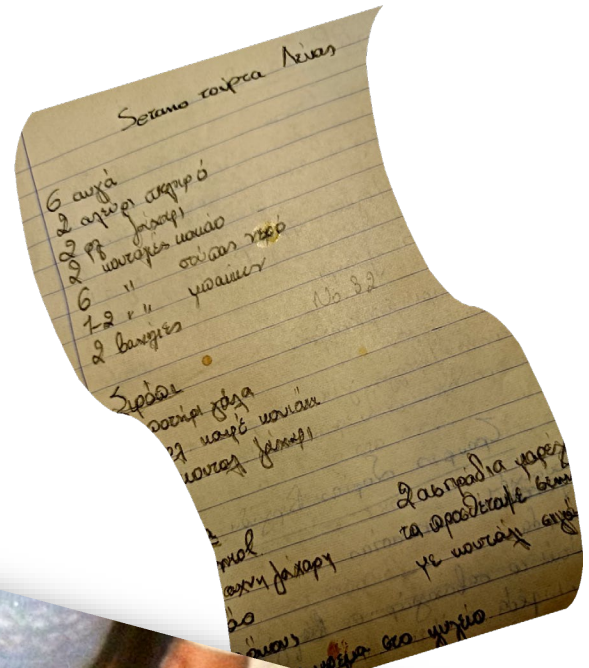 Σεrano τούρτα Λένας
6 αυγά
2 αλεύρι σκληρό
2 φλ ζάχαρι
2 κουταλιές κακάο
6 " σούπας νερό
1-2 " " μπαίκιν
2 βανίλιες
No 32
Σιρόπι
ποτήρι γάλα
φλ καφέ κονιάκ
κουταλ ζάχαρι
2 ασπράδια μαρέγ
τα προσθέταμε στην
με κουτάλι σιγά
άχνη ζάχαρη
κρέμα στο ψυγείο